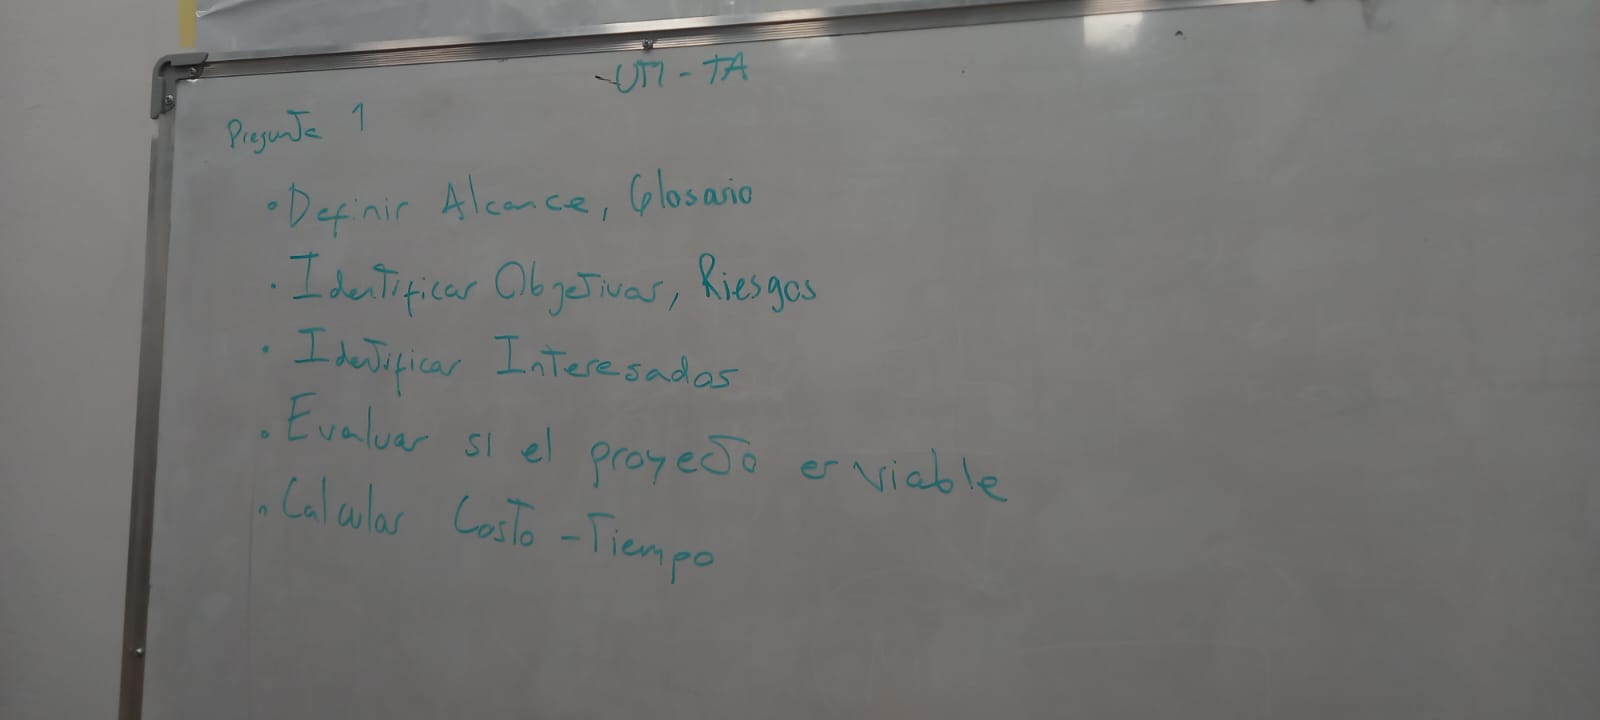 UTI - TA
Pregunta 1
• Definir Alcance, Glosario
• Identificar Objetivos, Riesgos
• Identificar Interesados
• Evaluar si el proyecto es viable
• Calcular Costo - Tiempo